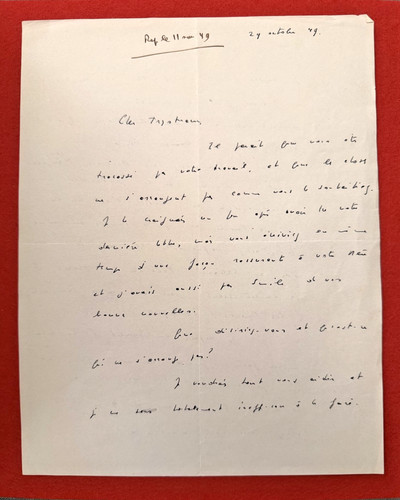 Rep le 11 nov 49 29 octobre 49.
Cher
Il paraît que vous êtes
tracassé par votre travail, et que les choses
ne s'arrangent pas comme vous le souhaitiez.
Je le craignais un peu après avoir lu votre
dernière lettre, mais vous écriviez en même
temps d'une façon rassurante à votre
et j'avais aussi par de vos
bonnes nouvelles.
Que désirez-vous et qu'est-ce
qui ne s'arrange pas?
Je voudrais tant vous aider et
je me sens totalement à le faire.